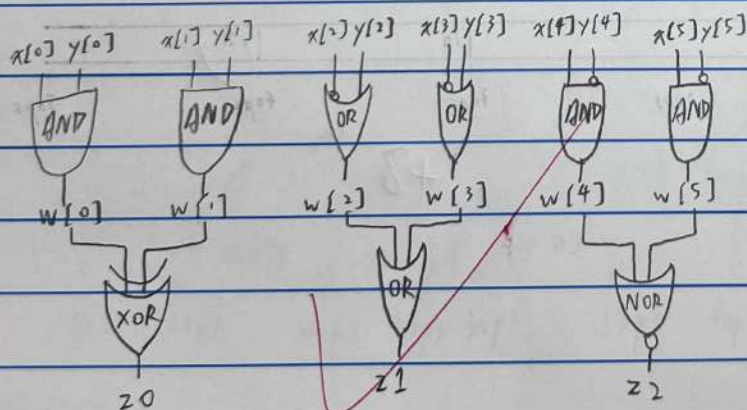 x[0] y[0] x[1] y[1] x[2] y[2] x[3] y[3] x[4] y[4] x[5] y[5]
AND AND OR OR AND AND
w[0] w[1] w[2] w[3] w[4] w[5]
XOR OR NOR
z0 z1 z2